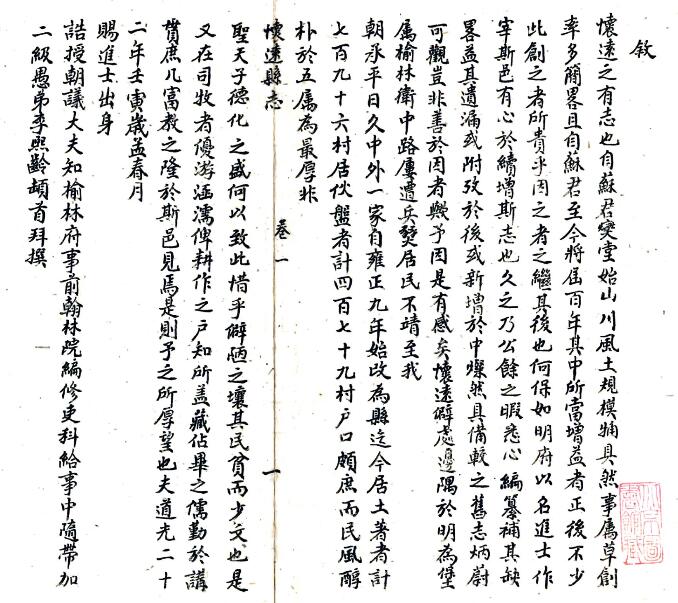 敘
懷遠之有志也自蘇君燮堂始山川風土規模犕具然事属草創
率多簡畧且自蘇君至今將屆百年其中所當增益者正復不少
此創之者所貴乎因之者之繼其後也何保如明府以名進士作
宰斯邑有心於續增斯志也久之乃公餘之暇悉心編纂補其缺
畧益其遺漏或附攷於後或新增於中燦然具備較之舊志炳蔚
可觀豈非善於因者歟予因是有感矣懷遠僻處邊隅於明為堡
属榆林衛中路屢遭兵燹居民不靖至我
朝承平日久中外一家自雍正九年始改為縣迄今居土著者計
七百九十六村居伙盤者計四百七十九村户口頗庶而民風醇
朴於五属為最厚非
懷遠縣志
卷一
一
聖天子德化之盛何以致此惜乎僻陋之壤其民貧而少文也是
又在司牧者優游涵濡俾耕作之户知所蓋藏佔畢之儒勤於講
貫庶几富教之隆於斯邑見焉是則予之所厚望也夫道光二十
二年壬寅歲孟春月
賜進士出身
誥授朝議大夫知榆林府事前翰林院編修吏科給事中隨帶加
二級愚弟李熙齡頓首拜撰